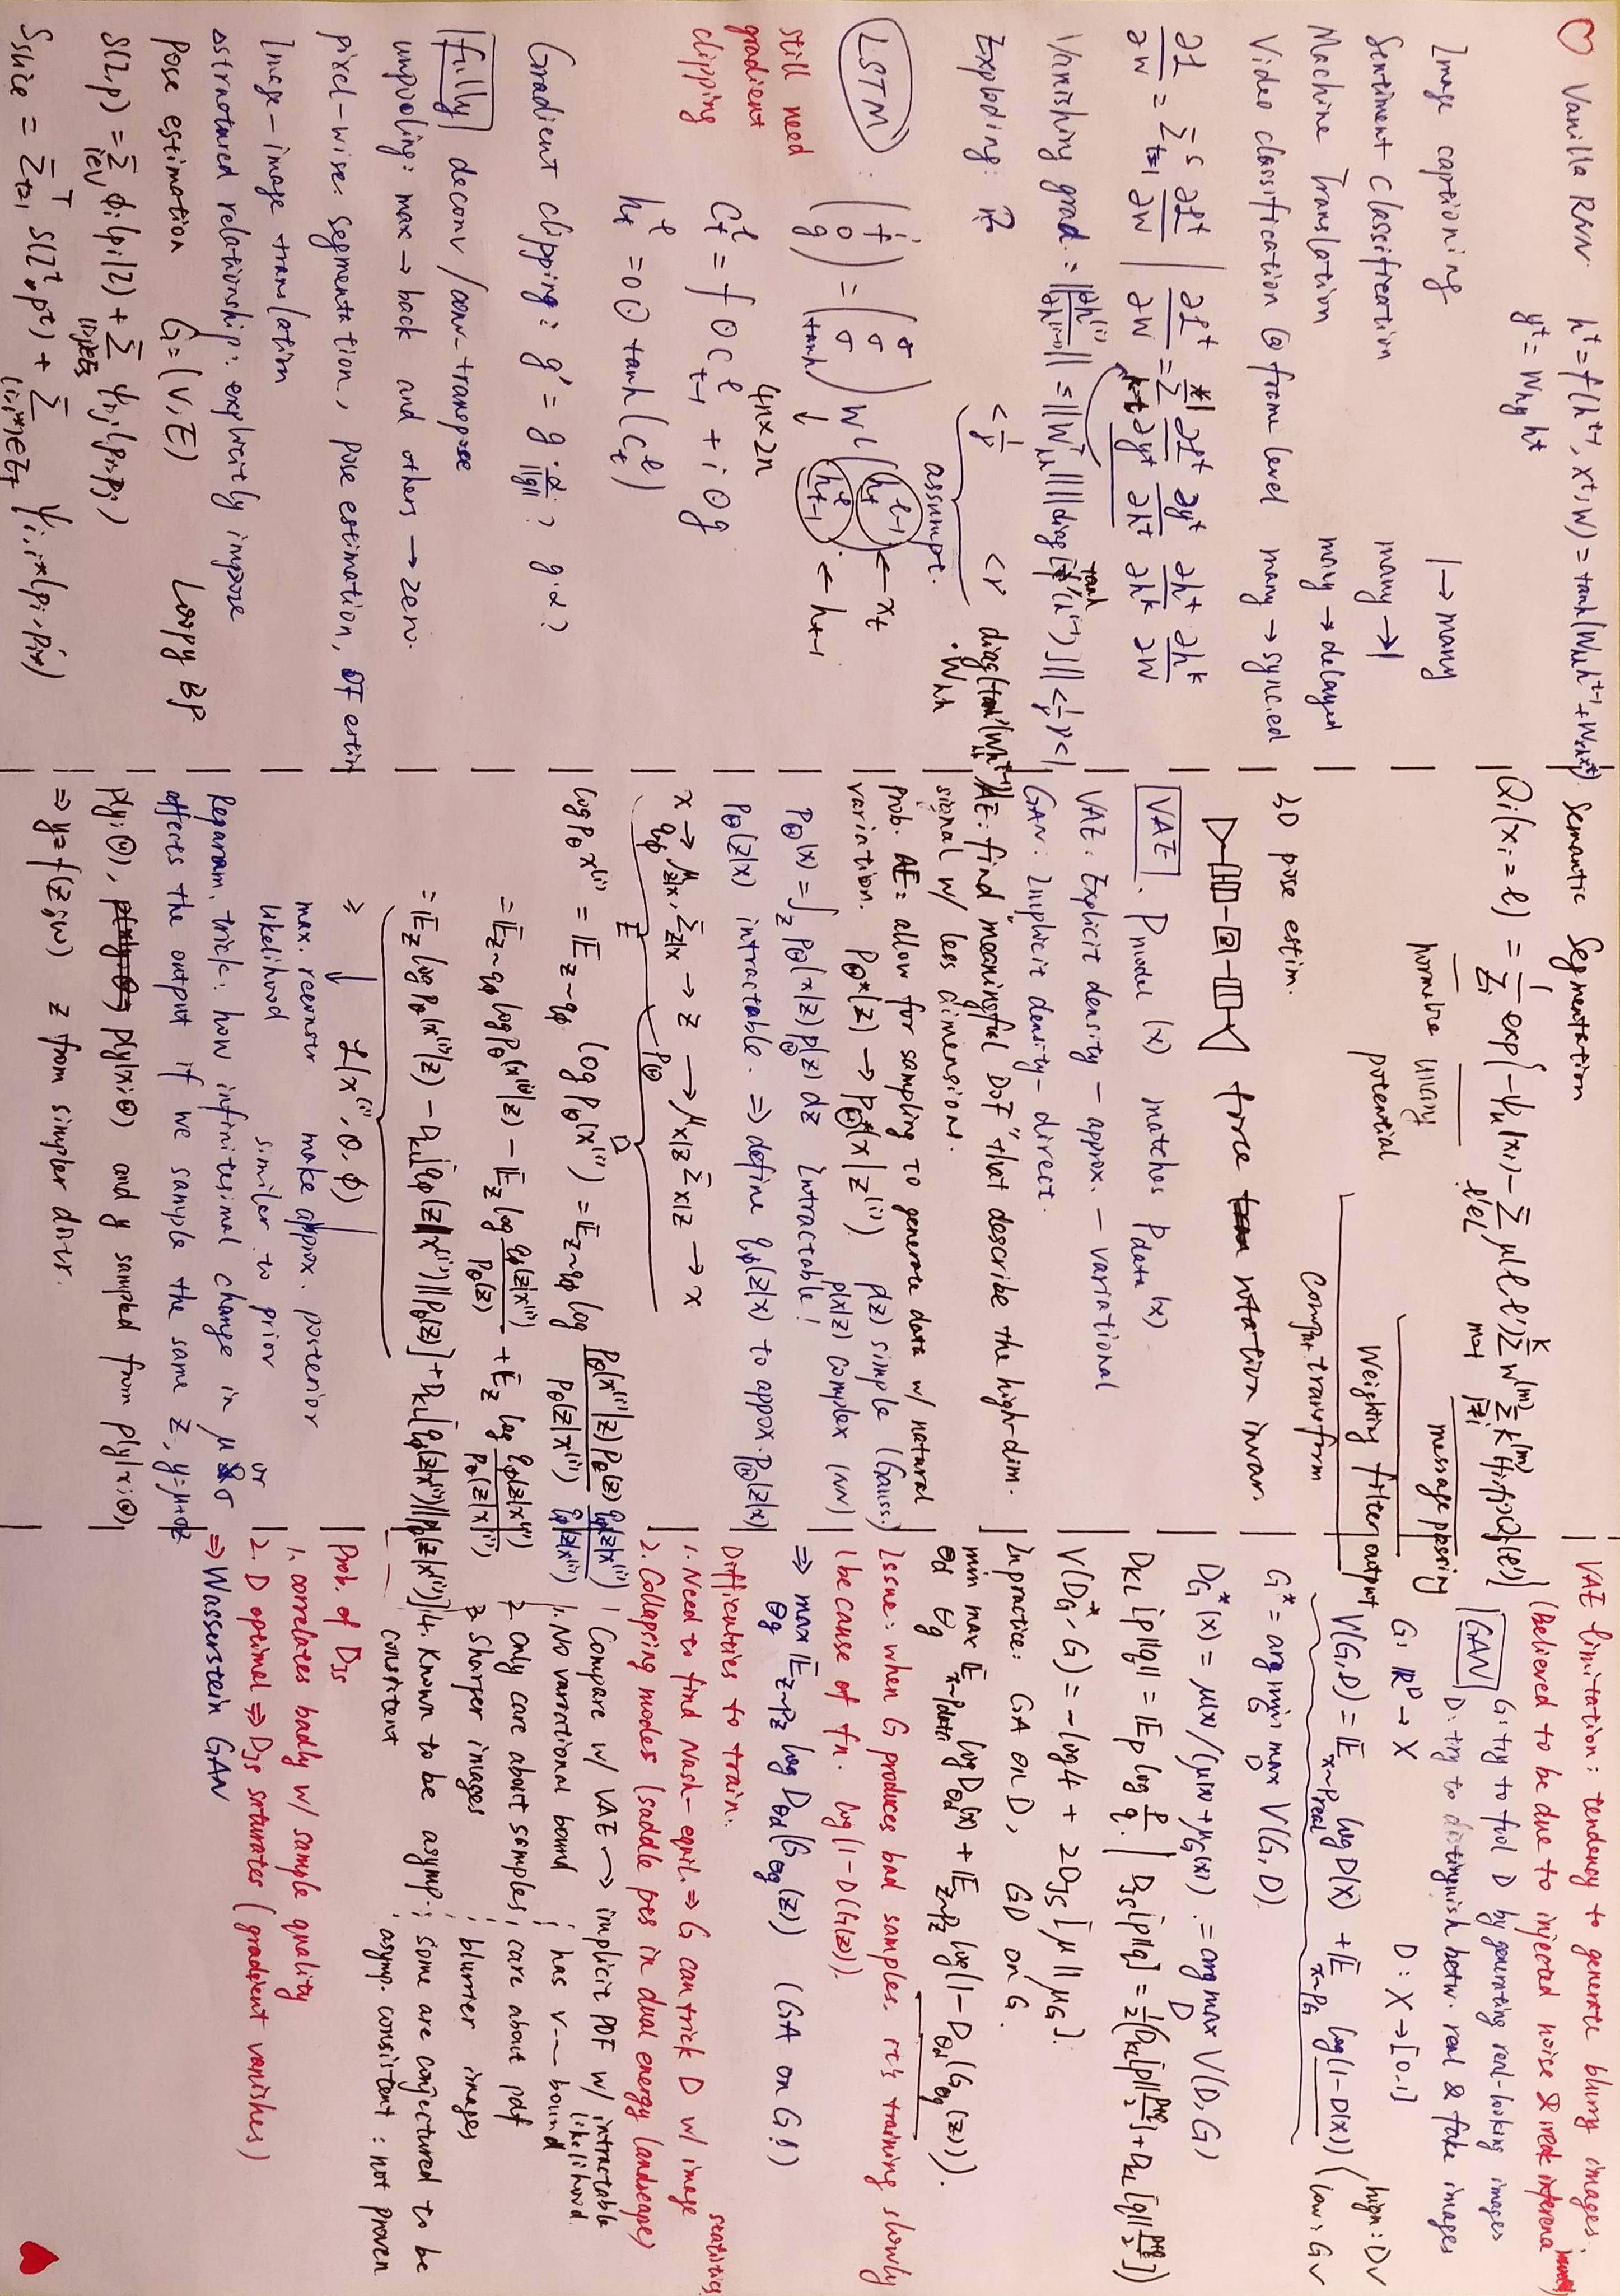 ♡ Vanilla RNN. hᵗ = f(hᵗ⁻¹, xᵗ; W) = tanh(W_hh hᵗ⁻¹ + W_xh xᵗ)
yᵗ = W_hy hᵗ
Image captioning 1 → many
Sentiment classification many → 1
Machine Translation many → delayed
Video classification @ frame level many → synced
∂L/∂W = Σ_{t=1}^S ∂Lᵗ/∂W | ∂Lᵗ/∂W = Σ ∂Lᵗ/∂yᵗ ∂yᵗ/∂hᵗ ∂hᵗ/∂hᵏ ∂hᵏ/∂W
Vanishing grad.: ||∂h⁽ⁱ⁾/∂h⁽ⁱ⁻¹⁾|| ≤ ||W_hhᵀ|| ||diag[tanh'(hⁱ⁻¹)]|| < 1/γ γ < 1
< 1/γ < γ diag(tanh'(W_hh hᵗ⁻¹)) · W_hh
assumpt.
Exploding:
LSTM : (i f o g) = (σ σ σ tanh) W (h_t^{l-1} h_{t-1}^l) ← x_t ← h_{t-1}
4n×2n
still need
gradient
clipping
c_t^l = f ⊙ c_{t-1}^l + i ⊙ g
h_t^l = o ⊙ tanh(c_t^l)
Gradient clipping: g' = g · α/||g||
fully deconv / conv-transpose
unpooling: max → back and others → zero.
pixel-wise: segmentation, pose estimation, OF estim
Image-image translation
structured relationship: explicitly impose
Pose estimation G = (V, E) Loopy BP.
S(I,p) = Σ_{i∈V} φᵢ(pᵢ|I) + Σ_{(i,j)∈E_S} ψ_{i,j}(pᵢ,pⱼ)
S_slice = Σ_{t=1}^T S(Iᵗ, pᵗ) + Σ_{(i,i*)∈E_f} ψ_{i,i*}(pᵢ, p_{i*})
Semantic Segmentation
Qᵢ(xᵢ = l) = 1/Zᵢ exp{-ψᵤ(xᵢ) - Σ_{l'∈L} μ(l,l') Σ_{m=1}^K w⁽ᵐ⁾ Σ_{j≠i} k⁽ᵐ⁾(fᵢ,fⱼ) Qⱼ(l')}
normalize unary
potential
message passing
Weighting filter output
Compat. transform
3D pose estim.
force rotation invar.
VAE . P_model(x) matches p_data(x)
VAE: Explicit density - approx. - variational
GAN: Implicit density - direct.
AE: find "meaningful DoF" that describe the high-dim.
signal w/ less dimensions.
prob. AE = allow for sampling to generate data w/ natural
variation. p_θ*(z) → p_θ*(x|z⁽ⁱ⁾) p(z) simple (Gauss.)
p(x|z) complex (NN)
p_θ(x) = ∫_z p_θ(x|z) p_θ(z) dz Intractable!
p_θ(z|x) intractable. ⇒ define q_φ(z|x) to approx. p_θ(z|x)
x → μ_{z|x}, Σ_{z|x} → z → μ_{x|z} Σ_{x|z} → x
q_φ E p_θ D
log p_θ x⁽ⁱ⁾ = E_{z~q_φ} log p_θ(x⁽ⁱ⁾) = E_{z~q_φ} log p_θ(x⁽ⁱ⁾|z) p_θ(z) / p_θ(z|x⁽ⁱ⁾) q_φ(z|x⁽ⁱ⁾)/q_φ(z|x⁽ⁱ⁾)
= E_{z~q_φ} log p_θ(x⁽ⁱ⁾|z) - E_z log q_φ(z|x⁽ⁱ⁾)/p_θ(z) + E_z log q_φ(z|x⁽ⁱ⁾)/p_θ(z|x⁽ⁱ⁾)
= E_z log p_θ(x⁽ⁱ⁾|z) - D_KL[q_φ(z|x⁽ⁱ⁾)||p_θ(z)] + D_KL[q_φ(z|x⁽ⁱ⁾)||p_θ(z|x⁽ⁱ⁾)]
≥ L(x⁽ⁱ⁾, θ, φ)
max. reconstr make approx. posterior
likelihood similar to prior
Reparam. trick: how infinitesimal change in μ or σ
affects the output if we sample the same z, y = μ+σz
p(y;Θ), p(y|x;Θ) and y sampled from p(y|x;Θ)
⇒ y = f(z;w) z from simpler distr.
VAE limitation: tendency to generate blurry images.
(believed to be due to injected noise & weak inference
GAN G: try to fool D by generating real-looking images
D: try to distinguish betw. real & fake images
G: Rᴰ → X D: X → [0,1]
V(G,D) = E_{x~P_real} log D(x) + E_{x~P_G} log(1-D(x)) (high: D✓ low: G✓
G* = arg min_G max_D V(G,D)
D_G*(x) = μ(x)/(μ(x)+μ_G(x)) := arg max_D V(D,G)
D_KL[p||q] = E_p log p/q. | D_JS[p||q] = 1/2(D_KL[p||(p+q)/2] + D_KL[q||(p+q)/2])
V(D_G*, G) = -log4 + 2D_JS[μ||μ_G].
In practise: GA on D, GD on G.
min_θd max_θg E_{x~p_data} log D_θd(x) + E_{z~p_z} log(1 - D_θd(G_θg(z))).
Issue: when G produces bad samples, it's training slowly
(because of fn. log(1-D(G(z))).
⇒ max_θg E_{z~p_z} log D_θd(G_θg(z)) (GA on G!)
Difficulties to train:
1. Need to find Nash-equil. ⇒ G can trick D w/ image statistics
2. Collapsing modes (saddle pts in dual energy landscape)
Compare w/ VAE → implicit PDF w/ intractable likelihood
1. No variational bound ; has v~ bound
2. only care about samples ; care about pdf
3. Sharper images ; blurrier images
4. Known to be asymp. consistent ; some are conjectured to be asymp. consistent : not proven
Prob. of D_JS
1. correlates badly w/ sample quality
2. D optimal ⇒ D_JS saturates (gradient vanishes)
⇒ Wasserstein GAN